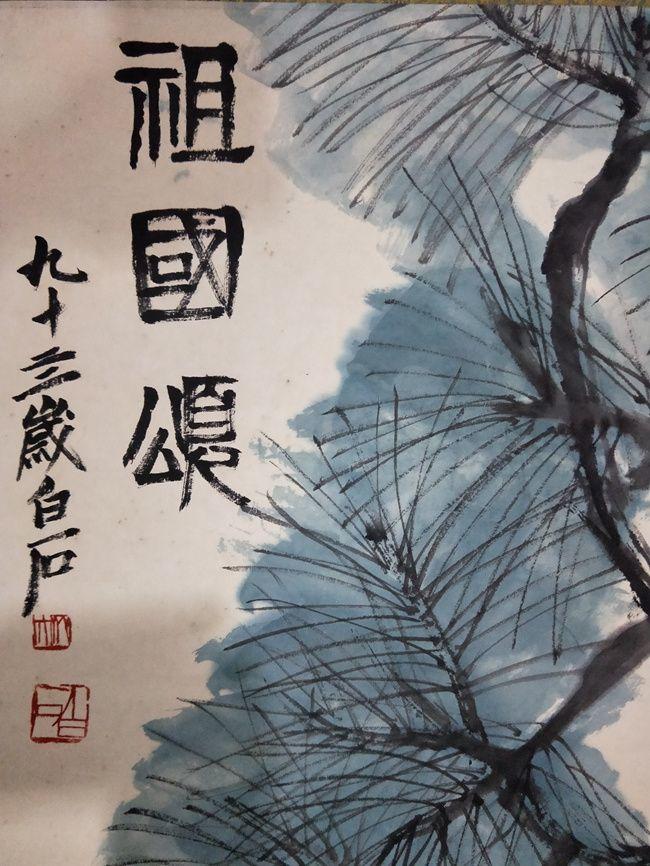 祖國頌
九十三歲白石